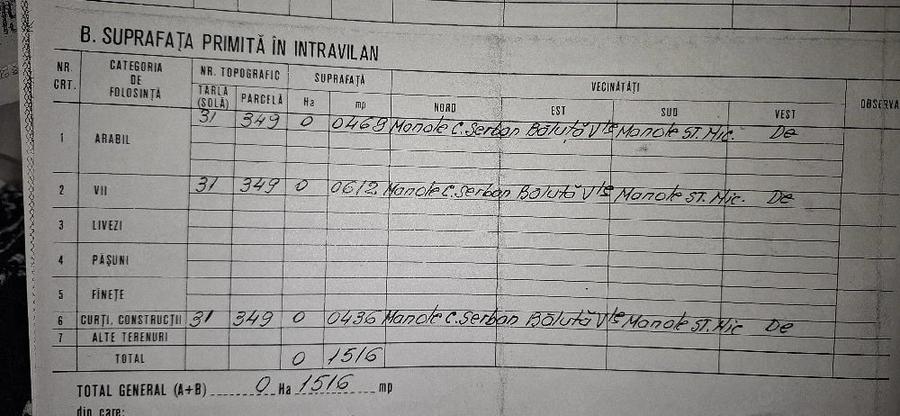 B. SUPRAFAȚA PRIMITĂ ÎN INTRAVILAN
NR. CRT. CATEGORIA DE FOLOSINȚĂ NR. TOPOGRAFIC SUPRAFAȚĂ VECINĂTĂȚI
TARLA (SOLĂ) PARCELĂ Ha mp NORD EST SUD VEST OBSERVA
1 ARABIL 31 349 0 0469 Manole C. Șerban Băluță Vle Manole ST. Mic. De
2 VII 31 349 0 0612 Manole C. Șerban Băluță Vle Manole ST. Mic. De
3 LIVEZI
4 PĂȘUNI
5 FÎNEȚE
6 CURȚI, CONSTRUCȚII 31 349 0 0436 Manole C. Șerban Băluță Vle Manole ST. Mic De
7 ALTE TERENURI
TOTAL 0 1516
TOTAL GENERAL (A+B) 0 Ha 1516 mp
din care: